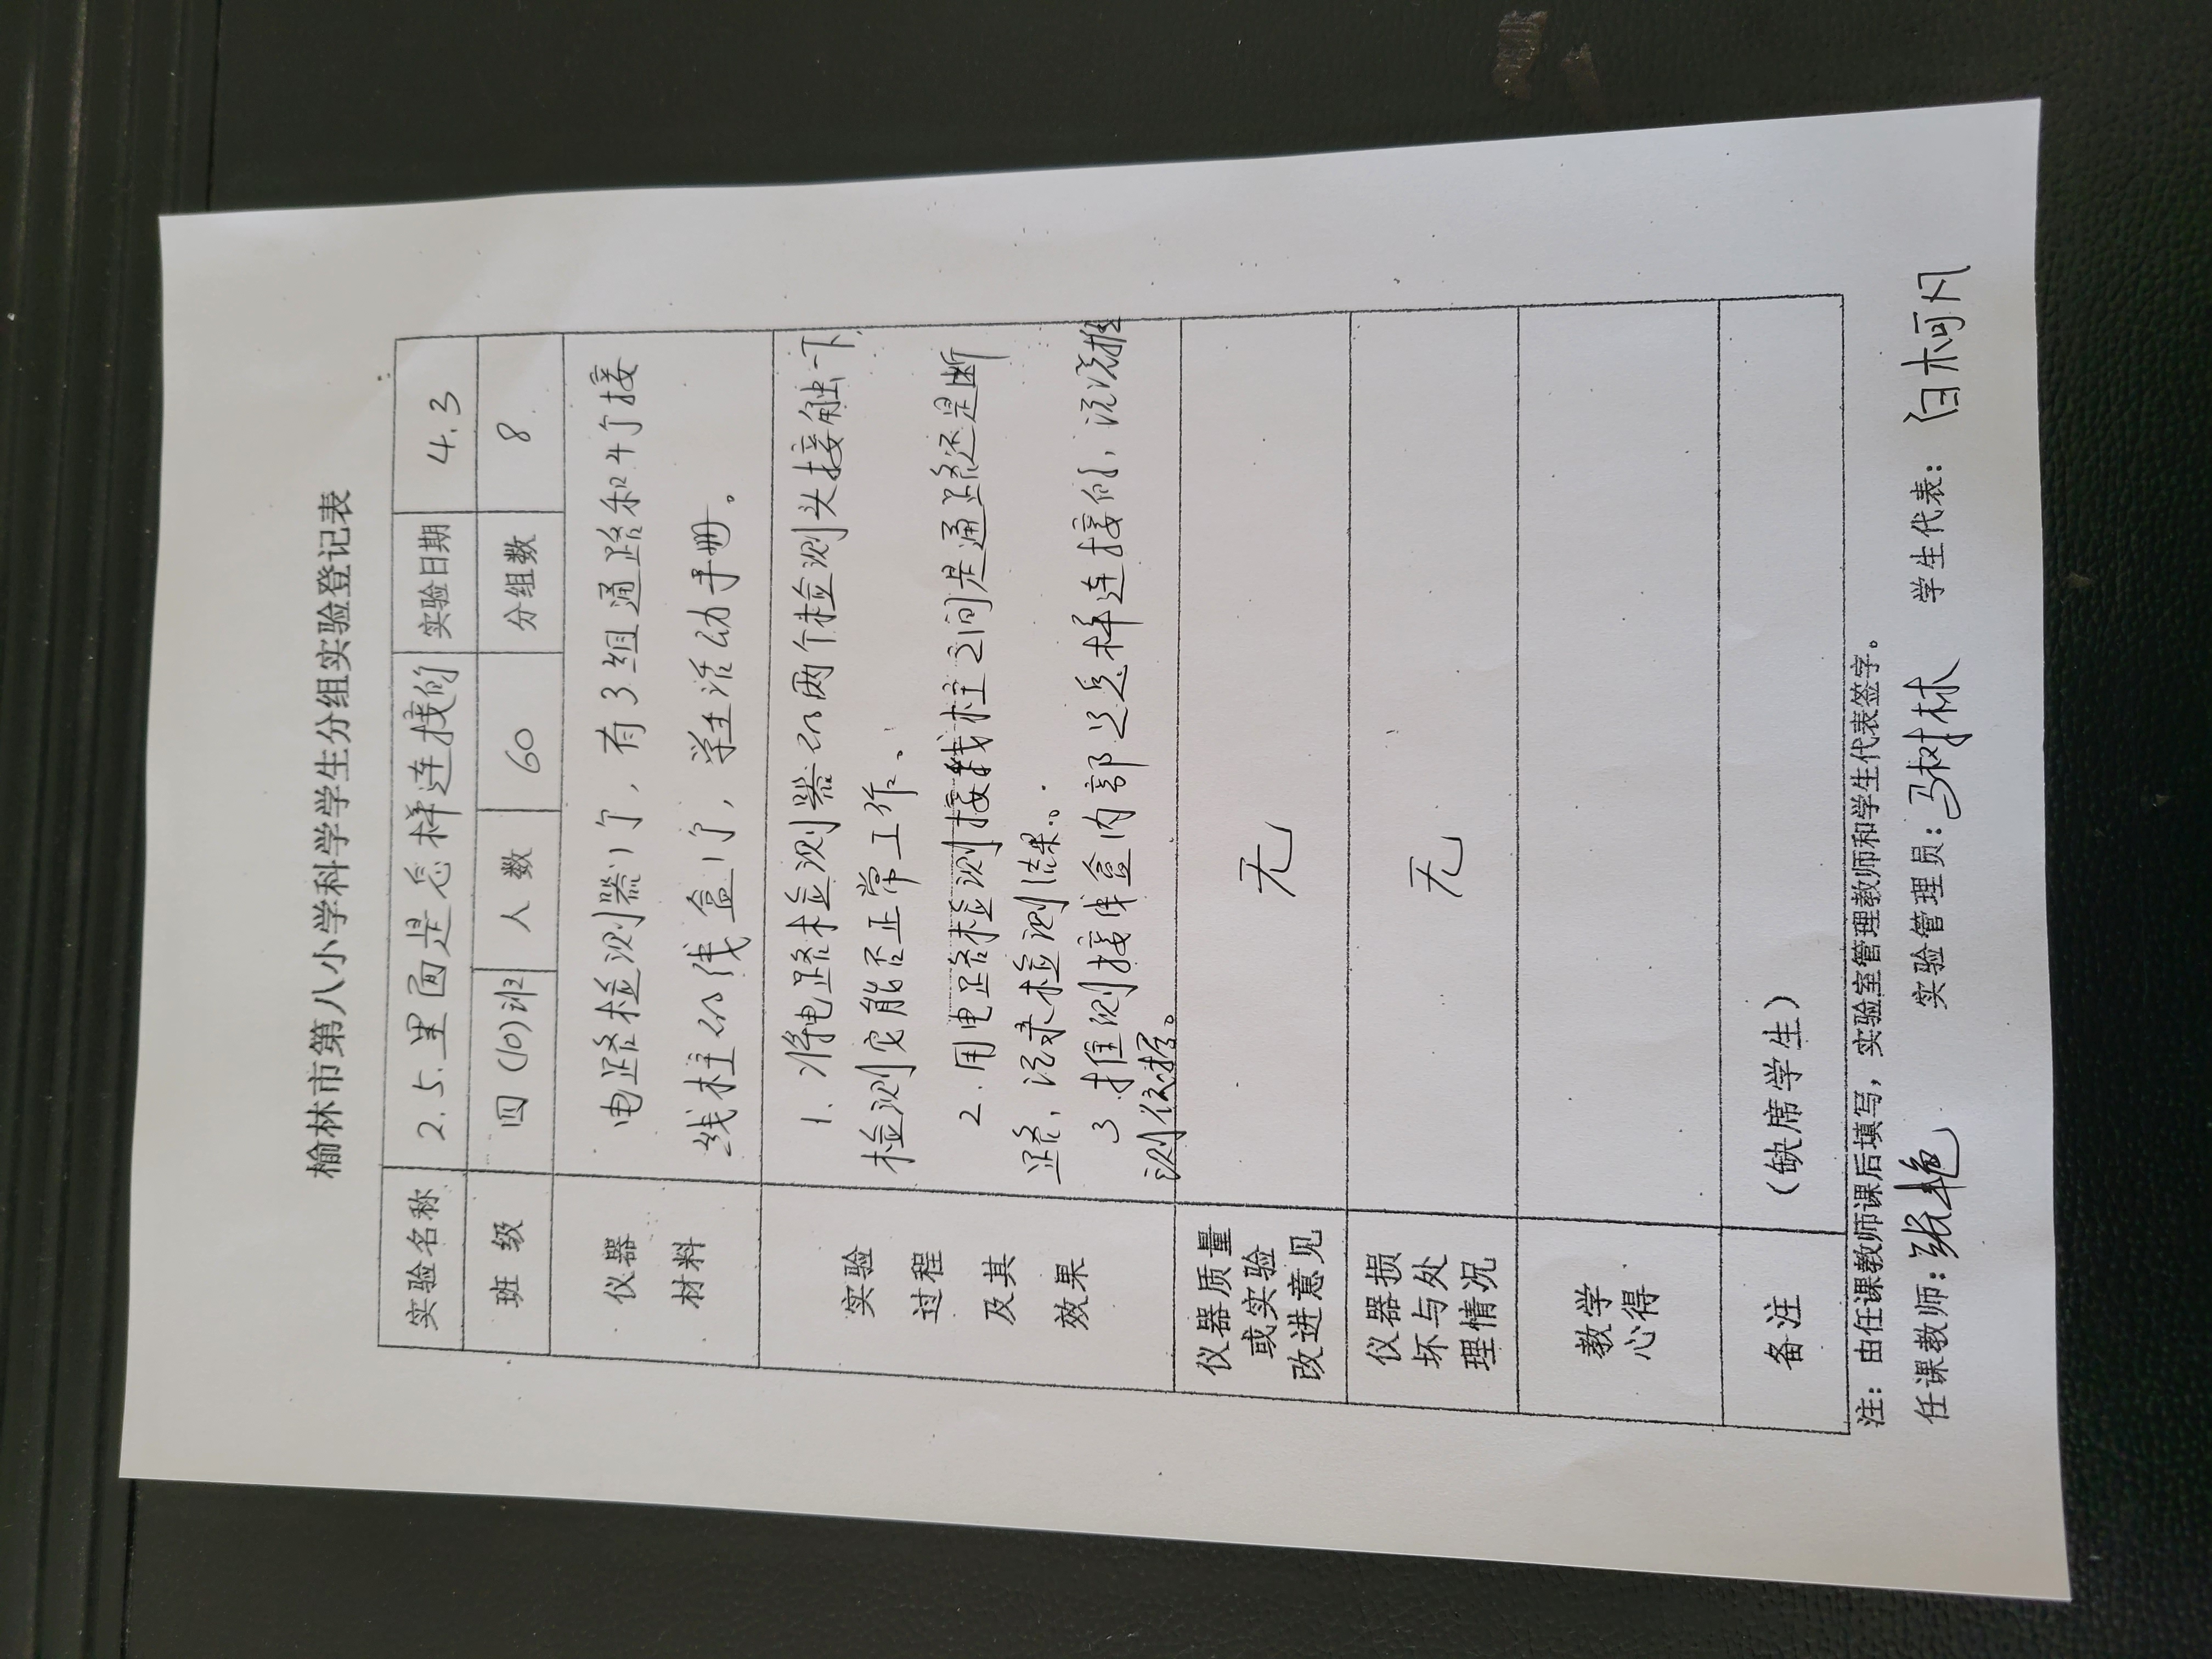 榆林市第八小学科学学生分组实验登记表
实验名称 2.5.里面是怎样连接的 实验日期 4.3
班 级 四(10)班 人 数 60 分组数 8
仪器 材料
电路检测器1个,有3组通路和4个接
线柱的线盒1个,学生活动手册。
实验 过程 及其 效果
1. 将电路检测器的两个检测头接触一下,
检测它能否正常工作。
2. 用电路检测接线柱之间是通路还是断
路,记录检测结果。
3 推测接线盒内部是怎样连接的,说说推
测依据。
仪器质量
或实验
改进意见
无
仪器损
坏与处
理情况
无
教学
心得
备注 (缺席学生)
注:由任课教师课后填写,实验室管理教师和学生代表签字。
任课教师:张艳 实验管理员:马树林 学生代表:白柯凡